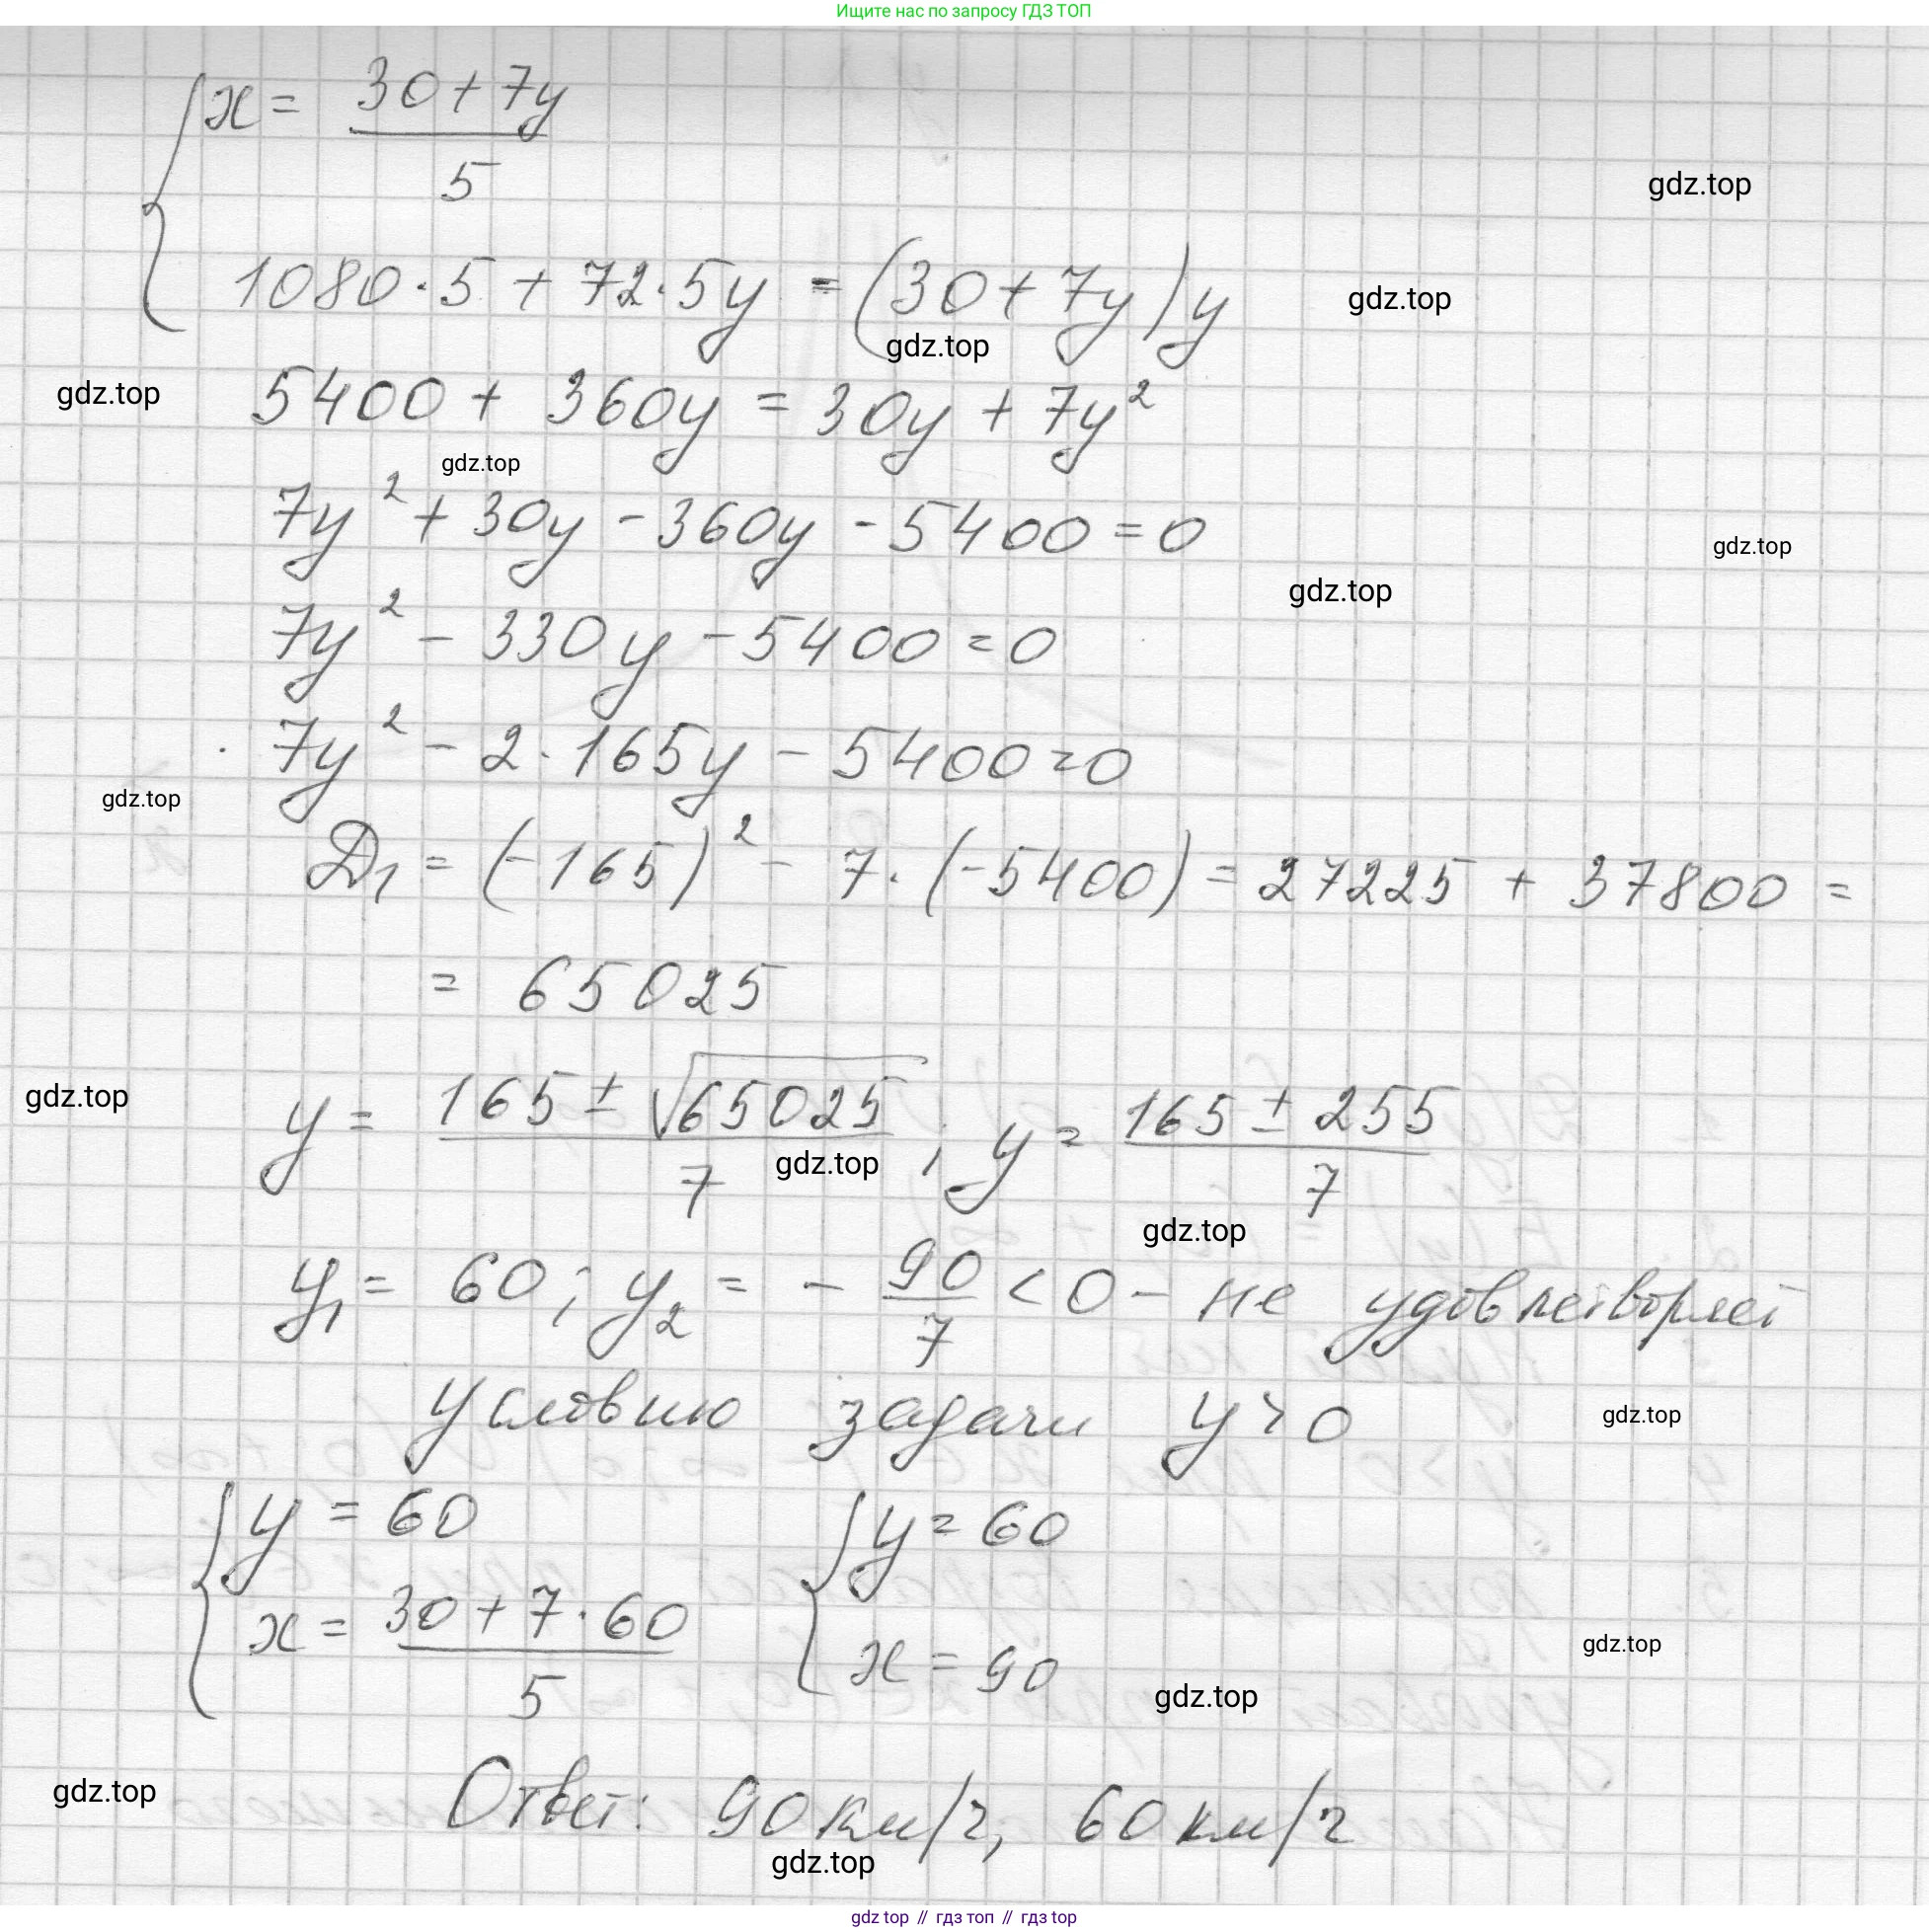 Ищите нас по запросу ГДЗ ТОП
x = (30 + 7y) / 5
gdz.top
1080·5 + 72·5y = (30 + 7y)y
gdz.top
gdz.top
gdz.top
5400 + 360y = 30y + 7y²
gdz.top
7y² + 30y - 360y - 5400 = 0
gdz.top
gdz.top
7y² - 330y - 5400 = 0
7y² - 2·165y - 5400 = 0
gdz.top
D₁ = (-165)² - 7·(-5400) = 27225 + 37800 =
= 65025
gdz.top
y = (165 ± √65025) / 7 ; y = (165 ± 255) / 7
gdz.top
gdz.top
y₁ = 60; y₂ = - 90/7 < 0 - не удовлетворяет
условию задачи y > 0
gdz.top
{ y = 60 { y = 60
x = (30 + 7·60) / 5 x = 90
gdz.top
gdz.top
gdz.top
Ответ: 90 км/ч, 60 км/ч
gdz.top
gdz top // гдз топ // гдз top